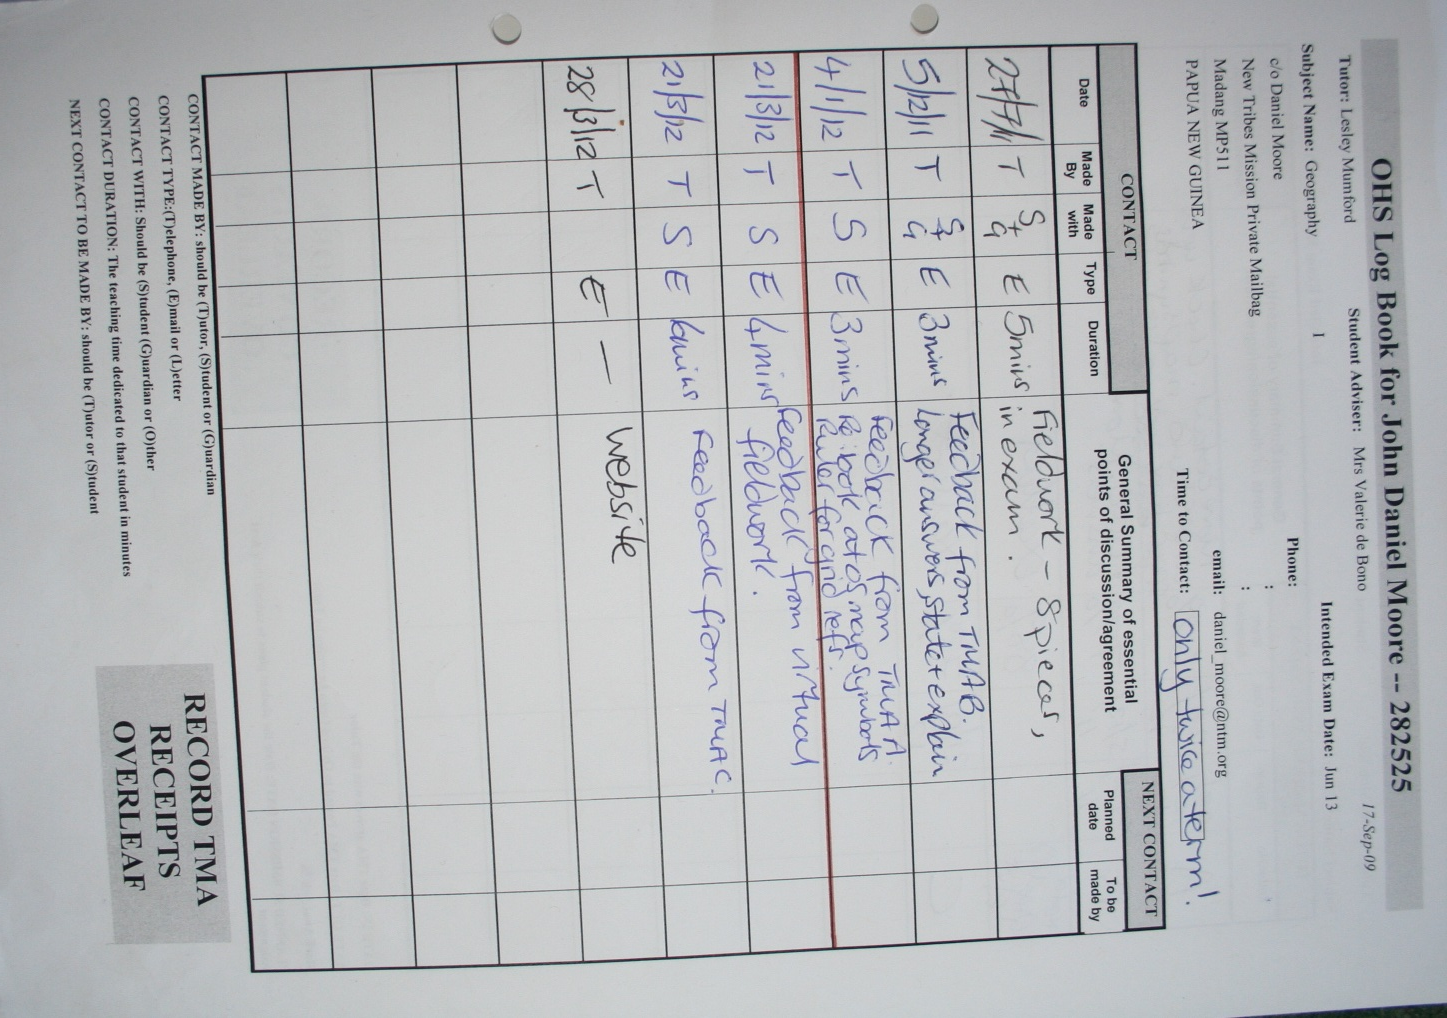 OHS Log Book for John Daniel Moore -- 282525
17-Sep-09
Tutor: Lesley Mumford Student Adviser: Mrs Valerie de Bono
Subject Name: Geography I Intended Exam Date: Jun 13
c/o Daniel Moore Phone:
New Tribes Mission Private Mailbag :
Madang MP511 email: daniel_moore@ntm.org
PAPUA NEW GUINEA Time to Contact: only twice a term!
CONTACT General Summary of essential points of discussion/agreement NEXT CONTACT
Date Made By Made with Type Duration Planned date To be made by
27/7/11 T S+G E 5mins Fieldwork - 8 pieces,
in exam.
5/12/11 T S+G E 3mins Feedback from TMAB.
Longer answers, state + explain
4/1/12 T S E 3mins Feedback from TMA A.
Re: look at os map symbols
Ruler for grid refs.
21/3/12 T S E 4mins Feedback from virtual
fieldwork.
21/3/12 T S E 6mins Feedback from TMAC.
28/3/12 T E – website
CONTACT MADE BY: should be (T)utor, (S)tudent or (G)uardian
CONTACT TYPE:(T)elephone, (E)mail or (L)etter
CONTACT WITH: Should be (S)tudent (G)uardian or (O)ther
CONTACT DURATION: The teaching time dedicated to that student in minutes
NEXT CONTACT TO BE MADE BY: should be (T)utor or (S)tudent
RECORD TMA
RECEIPTS
OVERLEAF